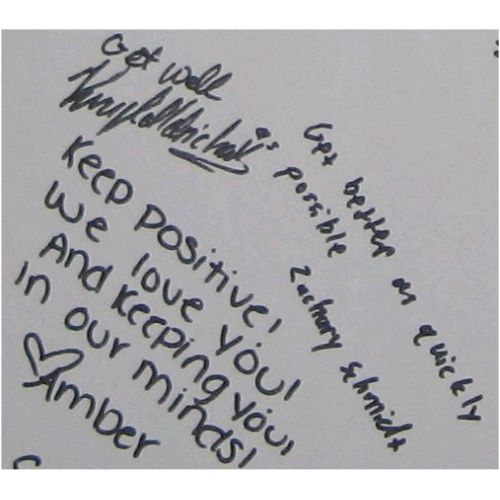 Get well
Keep positive!
We love you!
And keeping you
in our minds!
♡ Amber
Get better as quickly
as possible
Zachary Schmidt